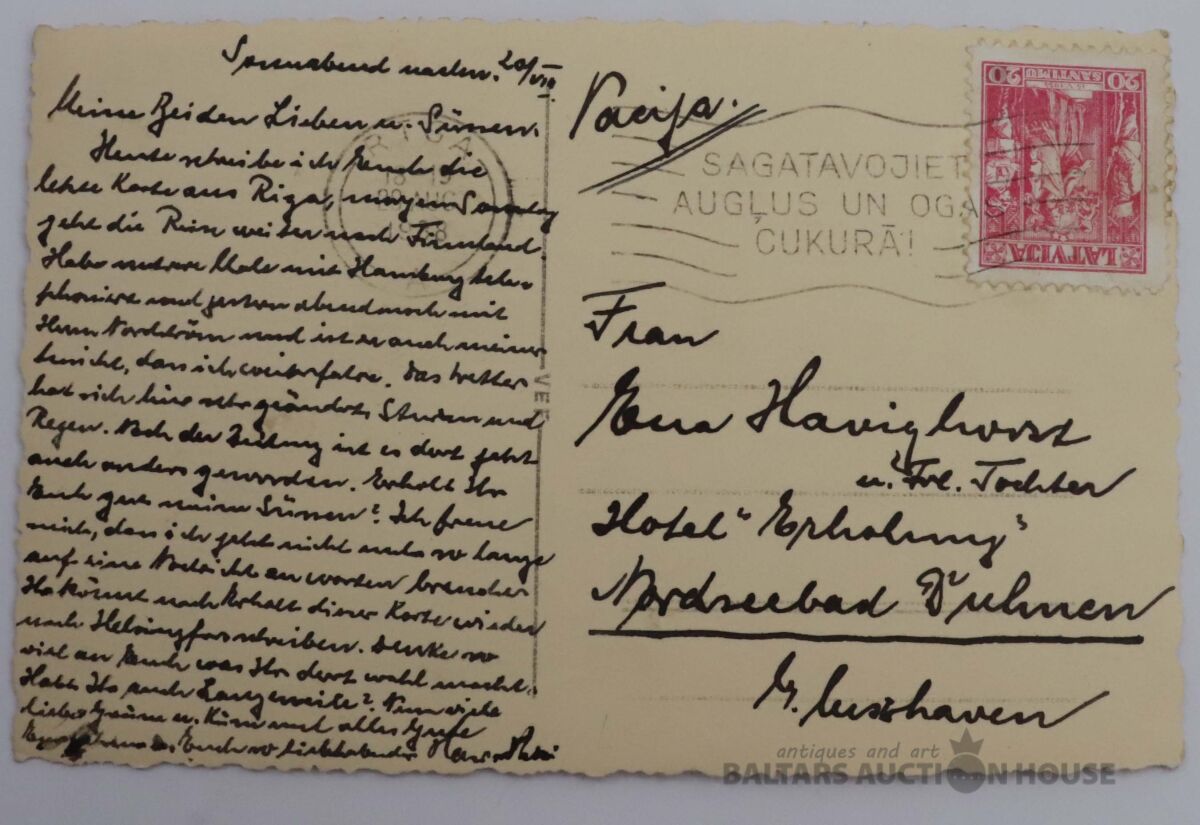 Sonnabend nachm. 20/VIII.
Meine Beiden Lieben u. Süssen.
Heute schreibe ich Euch die
letzte Karte aus Riga, morgen Sonntag
geht die Reise weiter nach Finnland.
Habe mehrere Male mit Hamburg tele-
phoniert und gestern abend noch mit
Herrn Nordström und ist er auch meiner
Ansicht, dass ich weiterfahre. Das Wetter
hat sich hier sehr geändert, Sturm und
Regen. Nach der Zeitung ist es dort jetzt
auch anders geworden. Erholt Ihr
Euch gut meine Süssen? Ich freue
mich, dass ich jetzt nicht mehr so lange
auf eine Nachricht zu warten brauche.
Ihr könnt nach Erhalt dieser Karte wieder
nach Helsingfors schreiben. Denke so
viel an Euch was Ihr dort wohl macht.
Habt Ihr auch Langeweile? Nun viele
liebe Grüsse u. Küsse und alles Gute
Euch so liebhabender
RIGA
AUG
VER
Vacija.
SAGATAVOJIET
AUGĻUS UN OGAS
CUKURĀ!
20 20
SANTIMU
LATVIJA
Frau
Ena Havighorst
u. Frl. Tochter
Hotel "Erholung"
Nordseebad Duhnen
b. Cuxhaven
antiques and art
BALTARS AUCTION HOUSE